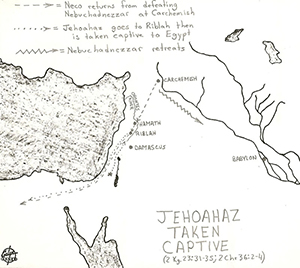 Neco returns from defeating
Nebuchadnezzar at Carchemish
Jehoahaz goes to Riblah then
is taken captive to Egypt
Nebuchadnezzar retreats
CARCHEMISH
HAMATH
RIBLAH
DAMASCUS
BABYLON
JEHOAHAZ
TAKEN
CAPTIVE
(2 Kg 23:31-35; 2 Chr 36:2-4)